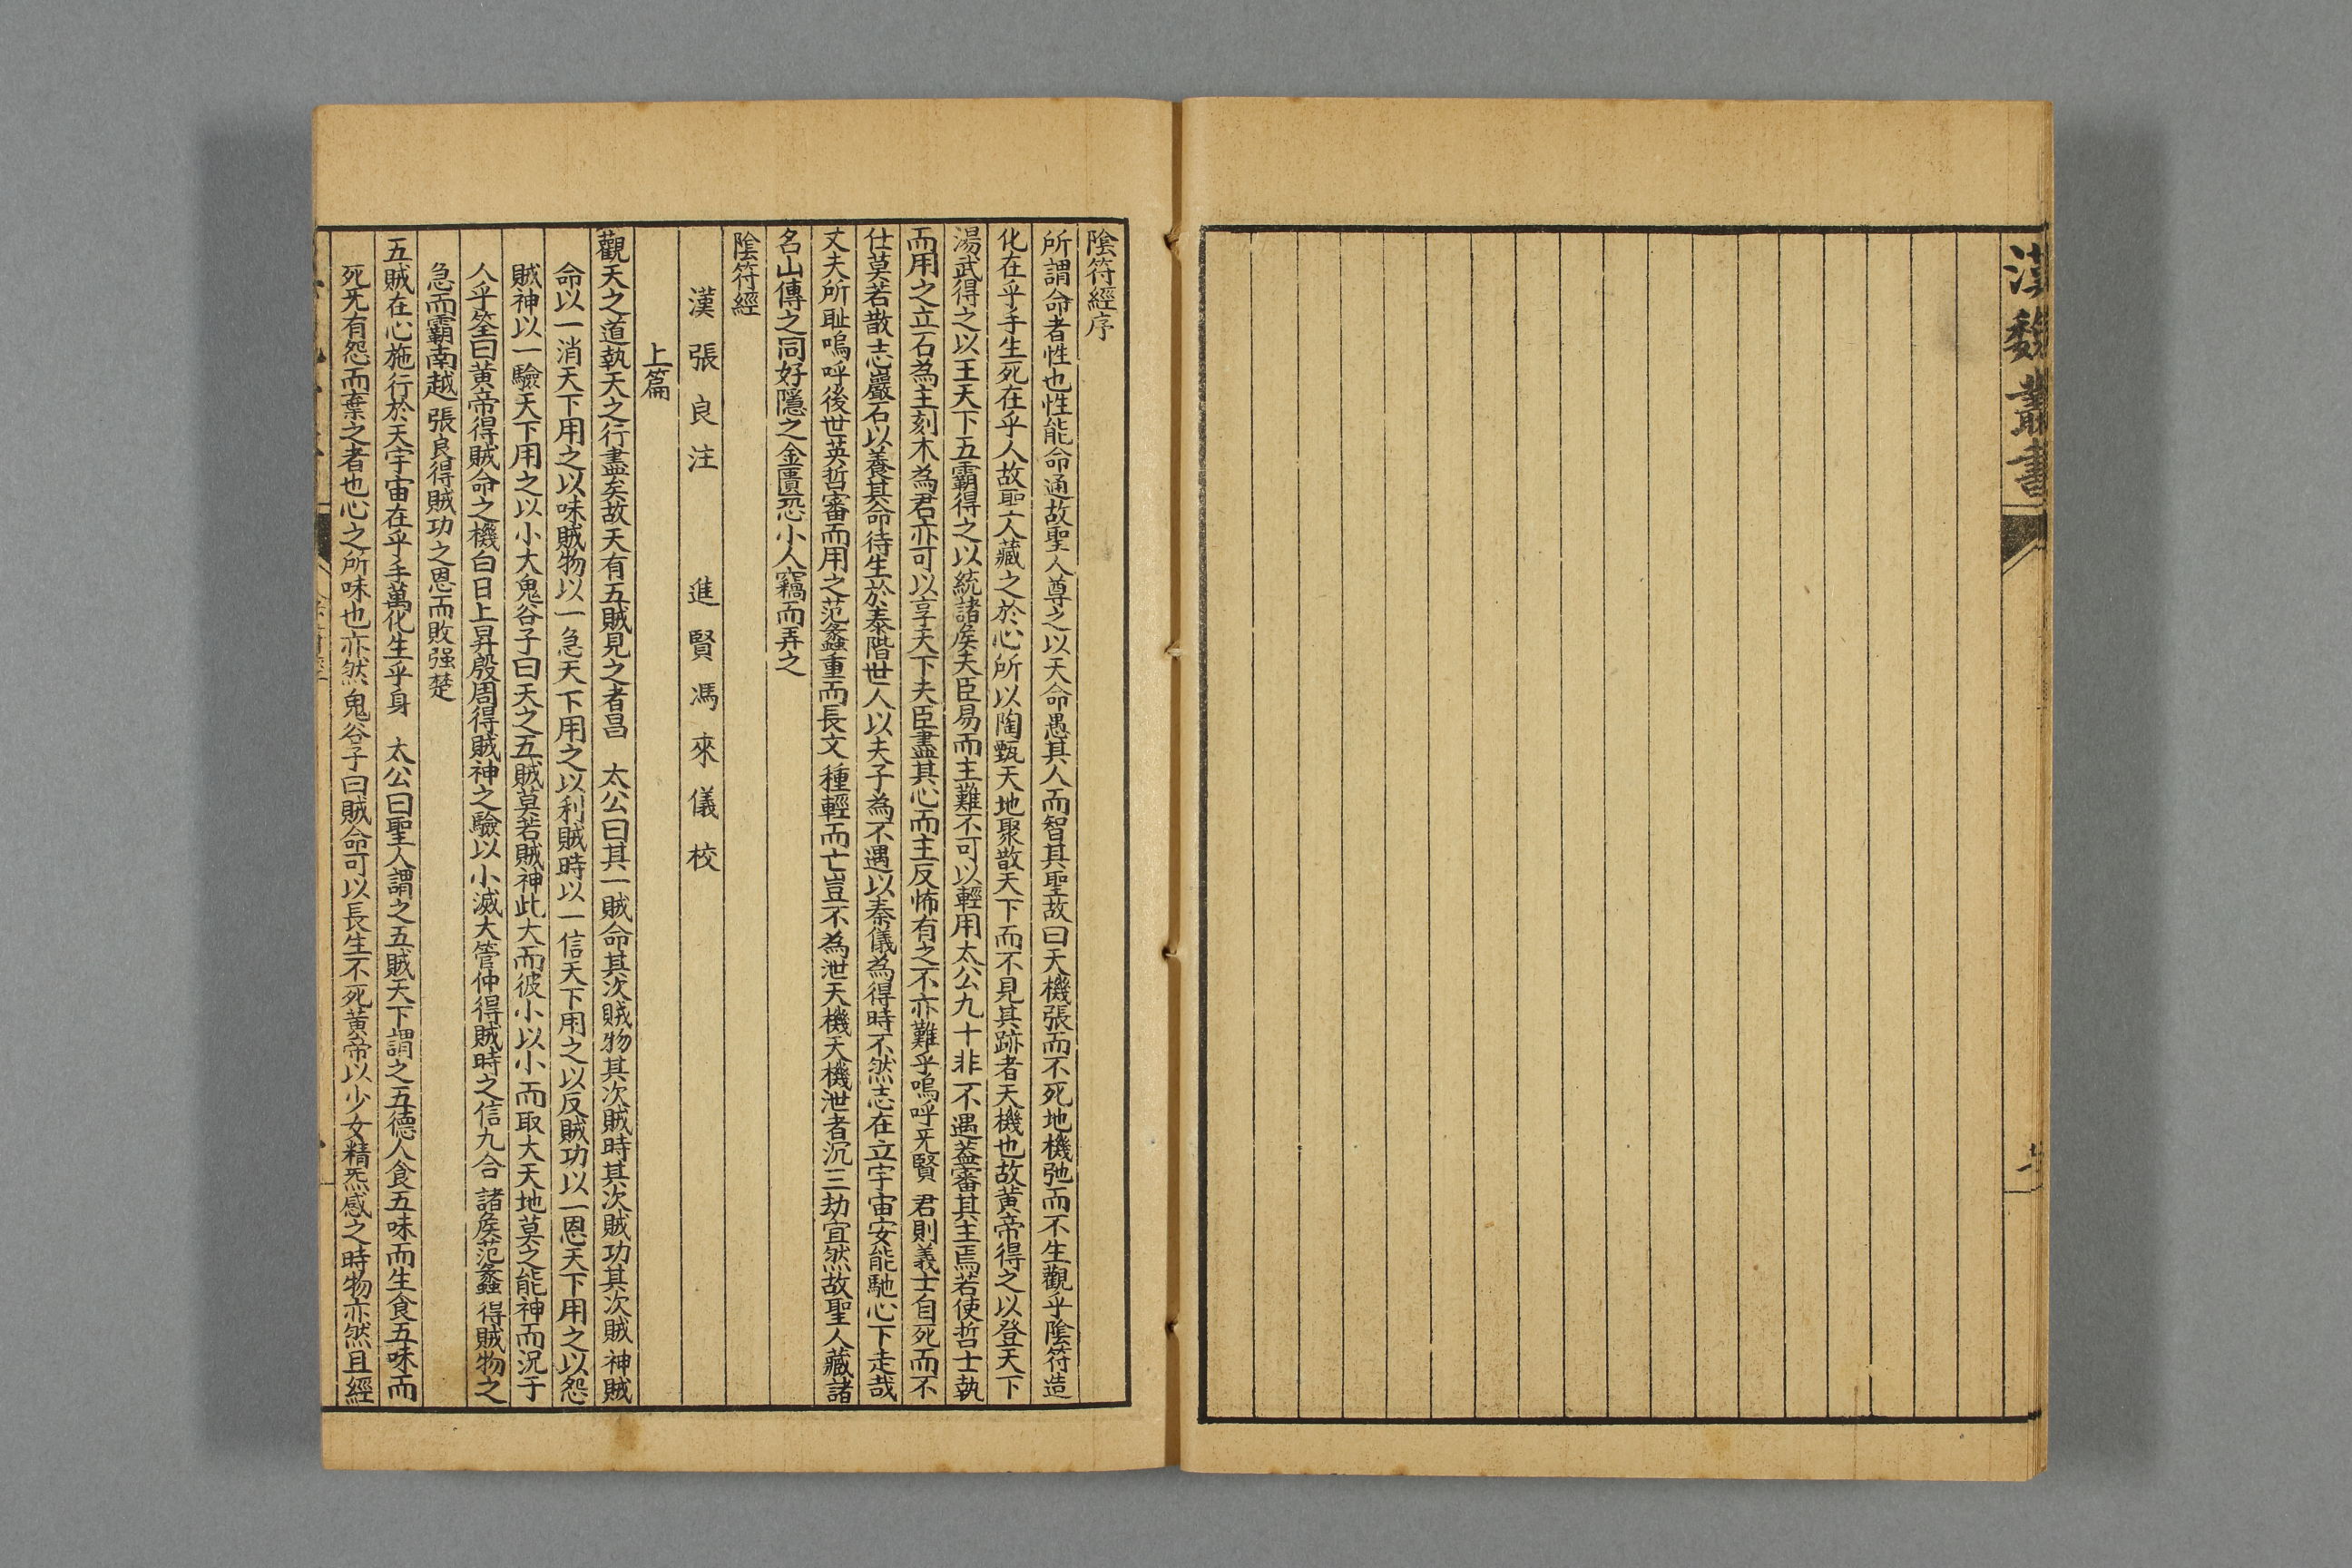 漢魏叢書
陰符經序
所謂命者性也性能命通故聖人尊之以天命愚其人而智其聖故曰天機張而不死地機弛而不生觀乎陰符造
化在乎手生死在乎人故聖人藏之於心所以陶甄天地聚散天下而不見其跡者天機也故黃帝得之以登天下
湯武得之以王天下五霸得之以統諸矦夫臣易而主難不可以輕用太公九十非不遇蓋審其主焉若使哲士執
而用之立石為主刻木為君亦可以享天下夫臣盡其心而主反怖有之不亦難乎嗚呼无賢君則義士自死而不
仕莫若散志巖石以養其命待生於泰階世人以夫子為不遇以秦儀為得時不然志在立宇宙安能馳心下走哉
丈夫所耻嗚呼後世英哲審而用之范蠡重而長文種輕而亡豈不為泄天機天機泄者沉三劫宜然故聖人藏諸
名山傳之同好隱之金匱恐小人竊而弄之
陰符經
漢張良注 進賢馮來儀校
上篇
觀天之道執天之行盡矣故天有五賊見之者昌 太公曰其一賊命其次賊物其次賊時其次賊功其次賊神賊
命以一消天下用之以味賊物以一急天下用之以利賊時以一信天下用之以反賊功以一恩天下用之以怨
賊神以一驗天下用之以小大鬼谷子曰天之五賊莫若賊神此大而彼小以小而取大天地莫之能神而況于
人乎筌曰黃帝得賊命之機白日上昇殷周得賊神之驗以小滅大管仲得賊時之信九合諸矦范蠡得賊物之
急而霸南越張良得賊功之恩而敗强楚
五賊在心施行於天宇宙在乎手萬化生乎身 太公曰聖人謂之五賊天下謂之五德人食五味而生食五味而
死无有怨而棄之者也心之所味也亦然鬼谷子曰賊命可以長生不死黃帝以少女精炁感之時物亦然且經